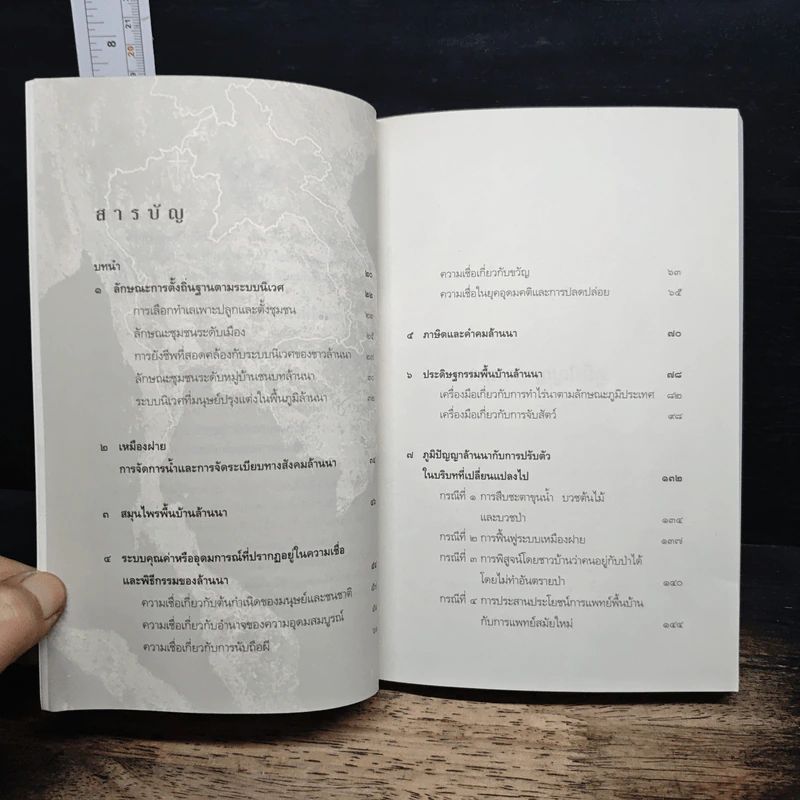 สารบัญ
บทนำ ๒๐
๑ ลักษณะการตั้งถิ่นฐานตามระบบนิเวศ ๒๔
การเลือกทำเลเพาะปลูกและตั้งชุมชน ๒๔
ลักษณะชุมชนระดับเมือง ๒๕
การยังชีพที่สอดคล้องกับระบบนิเวศของชาวล้านนา ๒๙
ลักษณะชุมชนระดับหมู่บ้านชนบทล้านนา
ระบบนิเวศที่มนุษย์ปรุงแต่งในพื้นภูมิล้านนา
๒ เหมืองฝาย
การจัดการน้ำและการจัดระเบียบทางสังคมล้านนา
๓ สมุนไพรพื้นบ้านล้านนา
๔ ระบบคุณค่าหรืออุดมการณ์ที่ปรากฏอยู่ในความเชื่อ
และพิธีกรรมของล้านนา
ความเชื่อเกี่ยวกับต้นกำเนิดของมนุษย์และชนชาติ
ความเชื่อเกี่ยวกับอำนาจของความอุดมสมบูรณ์
ความเชื่อเกี่ยวกับการนับถือผี
ความเชื่อเกี่ยวกับขวัญ ๖๓
ความเชื่อในยุคอุดมคติและการปลดปล่อย ๖๕
๕ ภาษิตและคำคมล้านนา ๗๐
๖ ประดิษฐกรรมพื้นบ้านล้านนา ๗๘
เครื่องมือเกี่ยวกับการทำไร่นาตามลักษณะภูมิประเทศ ๘๒
เครื่องมือเกี่ยวกับการจับสัตว์ ๙๘
๗ ภูมิปัญญาล้านนากับการปรับตัว
ในบริบทที่เปลี่ยนแปลงไป ๑๓๒
กรณีที่ ๑ การสืบชะตาขุนน้ำ บวชต้นไม้
และบวชป่า ๑๓๔
กรณีที่ ๒ การฟื้นฟูระบบเหมืองฝาย ๑๓๗
กรณีที่ ๓ การพิสูจน์โดยชาวบ้านว่าคนอยู่กับป่าได้
โดยไม่ทำอันตรายป่า ๑๔๐
กรณีที่ ๔ การประสานประโยชน์การแพทย์พื้นบ้าน
กับการแพทย์สมัยใหม่ ๑๔๔
8
20
21